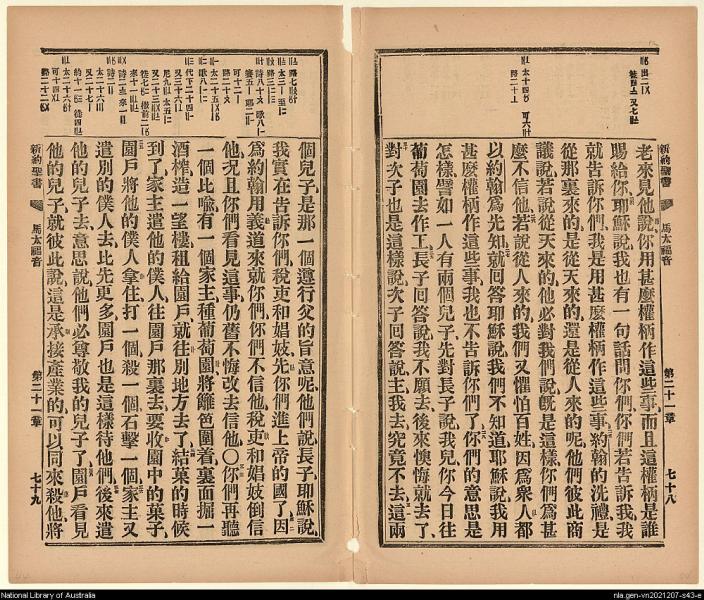 新約聖書
馬太福音
第二十一章
七十八
老來見他說、你用甚麼權柄作這些事、而且這權柄是誰
賜給你、耶穌說、我也有一句話問你們、你們若告訴我、我
就告訴你們、我是用甚麼權柄作這些事、約翰的洗禮、是
從那裏來的、是從天來的、還是從人來的呢、他們彼此商
議說、若說從天來的、他必對我們說、旣是這樣、你們爲甚
麼不信他、若說從人來的、我們又懼怕百姓、因爲衆人都
以約翰爲先知、就回答耶穌說、我們不知道、耶穌說、我用
甚麼權柄作這些事、我也不告訴你們了、你們的意思是
怎樣、譬如一人有兩個兒子、先對長子說、我兒、你今日往
葡萄園去作工、長子回答說、我不願去、後來懊悔就去了、
對次子也是這樣說、次子回答說、主我去、究竟不去、這兩
個兒子、是那一個遵行父的旨意呢、他們說、長子、耶穌說、
我實在告訴你們、稅吏和娼妓、先你們進上帝的國了、因
爲約翰用義道來就你們、你們不信他、稅吏和娼妓倒信
他、況且你們看見這事、仍舊不悔改去信他、○你們再聽
一個比喻、有一個家主、種葡萄園、將籬笆圍着、裏面掘一
酒榨、造一望樓、租給園戶、就往別地方去了、結菓的時候
到了、家主遣他的僕人、往園戶那裏去、要收園中的菓子、
園戶將他的僕人拿住、打一個、殺一個、石擊一個、家主又
遣別的僕人去、比先更多、園戶也是這樣待他們、後來遣
他的兒子去、意思說、他們必尊敬我的兒子了、園戶看見
他的兒子、就彼此說、這是承接產業的、可以同來殺他、將
新約聖書
馬太福音
第二十一章
七十九
National Library of Australia
nla.gen-vn2021207-s43-e